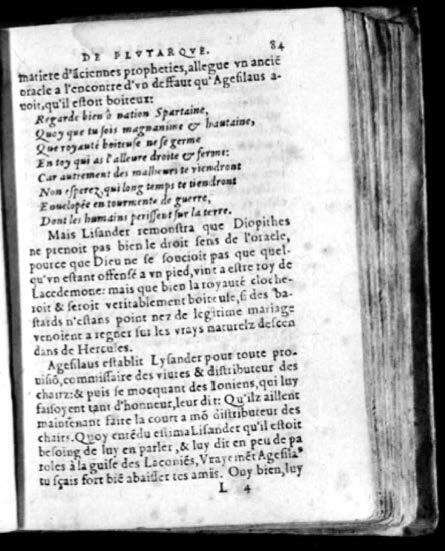 DE PLVTARQVE. 84
matiere d'āciennes propheties, allegue vn anciē
oracle a l'encontre d'vn deffaut qu'Agesilaus a-
uoit, qu'il estoit boiteux:
Regarde bien ô nation Spartaine,
Quoy que tu sois magnanime & hautaine,
Que royauté boiteuse ne se germe
En toy qui as l'alleure droite & ferme:
Car autrement des malheurs te viendront
Non esperez, qui long temps te tiendront
Enuelopée en tourmente de guerre,
Dont les humains perissent sur la terre.
Mais Lisander remonstra que Diopithes
ne prenoit pas bien le droit sens de l'oracle,
pource que Dieu ne se soucioit pas que quel-
qu'vn estant offensé a vn pied, vint a estre roy de
Lacedemone: mais que bien la royauté cloche-
roit & seroit veritablement boiteuse, si des ba-
stards n'estans point nez de legitime mariage
venoient a regner sur les vrays naturelz descen
dans de Hercules.
Agesilaus establit Lysander pour toute pro-
uisiō, commissaire des viures & distributeur des
chairz: & puis se mocquant des Ioniens, qui luy
faisoyent tant d'honneur, leur dit: Qu'ilz aillent
maintenant faire la court a mō distributeur des
chairs. Quoy entēdu estima Lisander qu'il estoit
besoing de luy en parler, & luy dit en peu de pa
roles à la guise des Laconiēs, Vrayemēt Agesila⁹
tu sçais fort biē abaisser tes amis. Ouy bien, luy
L 4